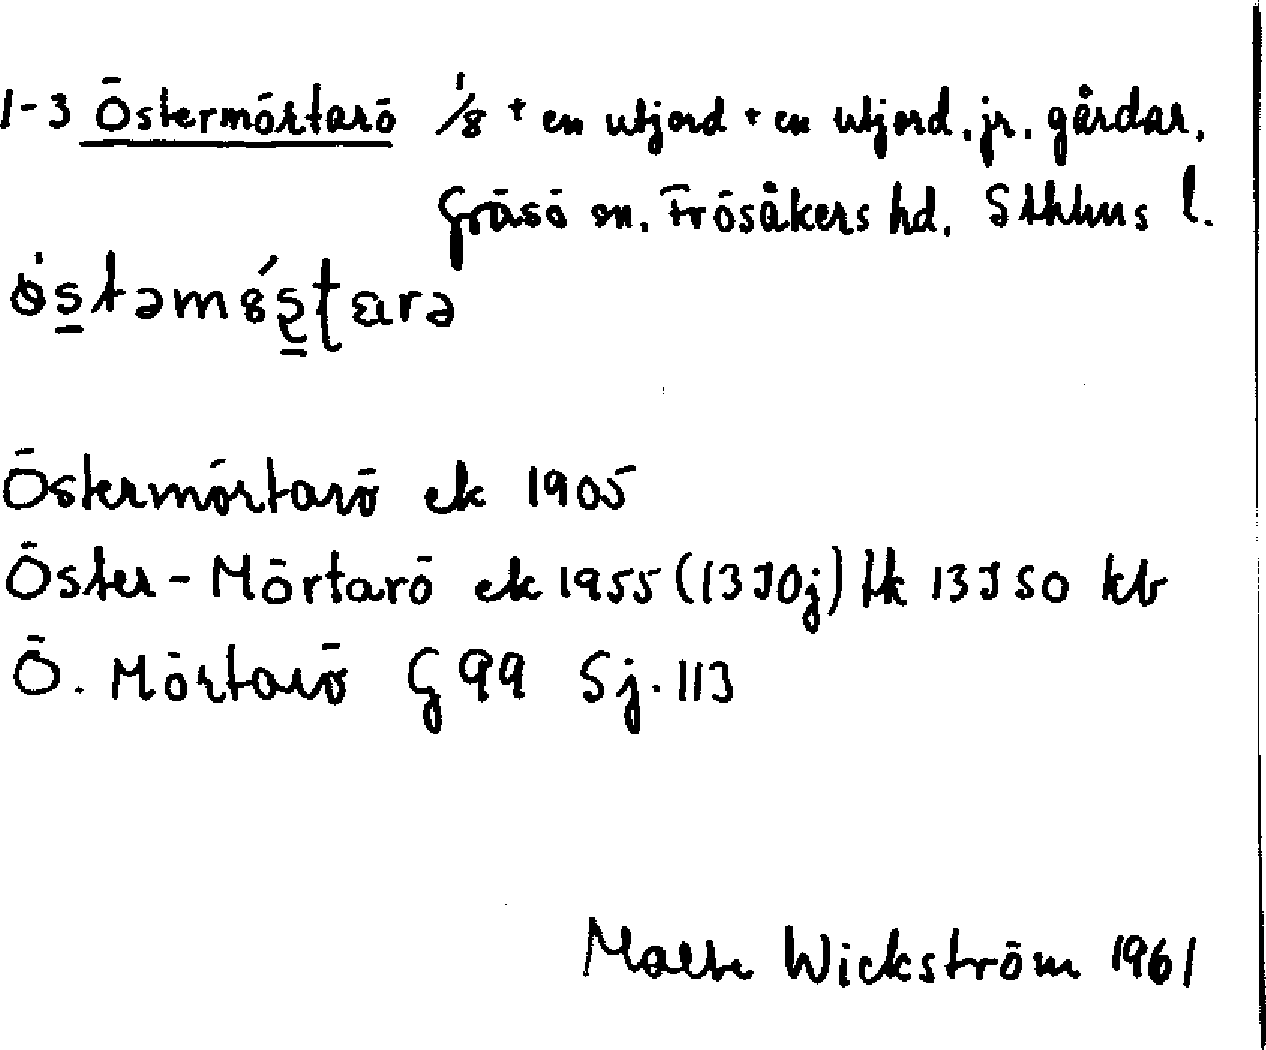 1-3 Östermörtarö 1/8 + en utjord + en utjord. jr. gårdar.
Gräsö sn. Frösåkers hd. Sthlms l.
Östermörtarö ek 1905
Öster-Mörtarö ek 1955 (13J0j) lk 13J50 kb
Ö. Mörtarö G 99 Sj. 113
Malte Wickström 1961